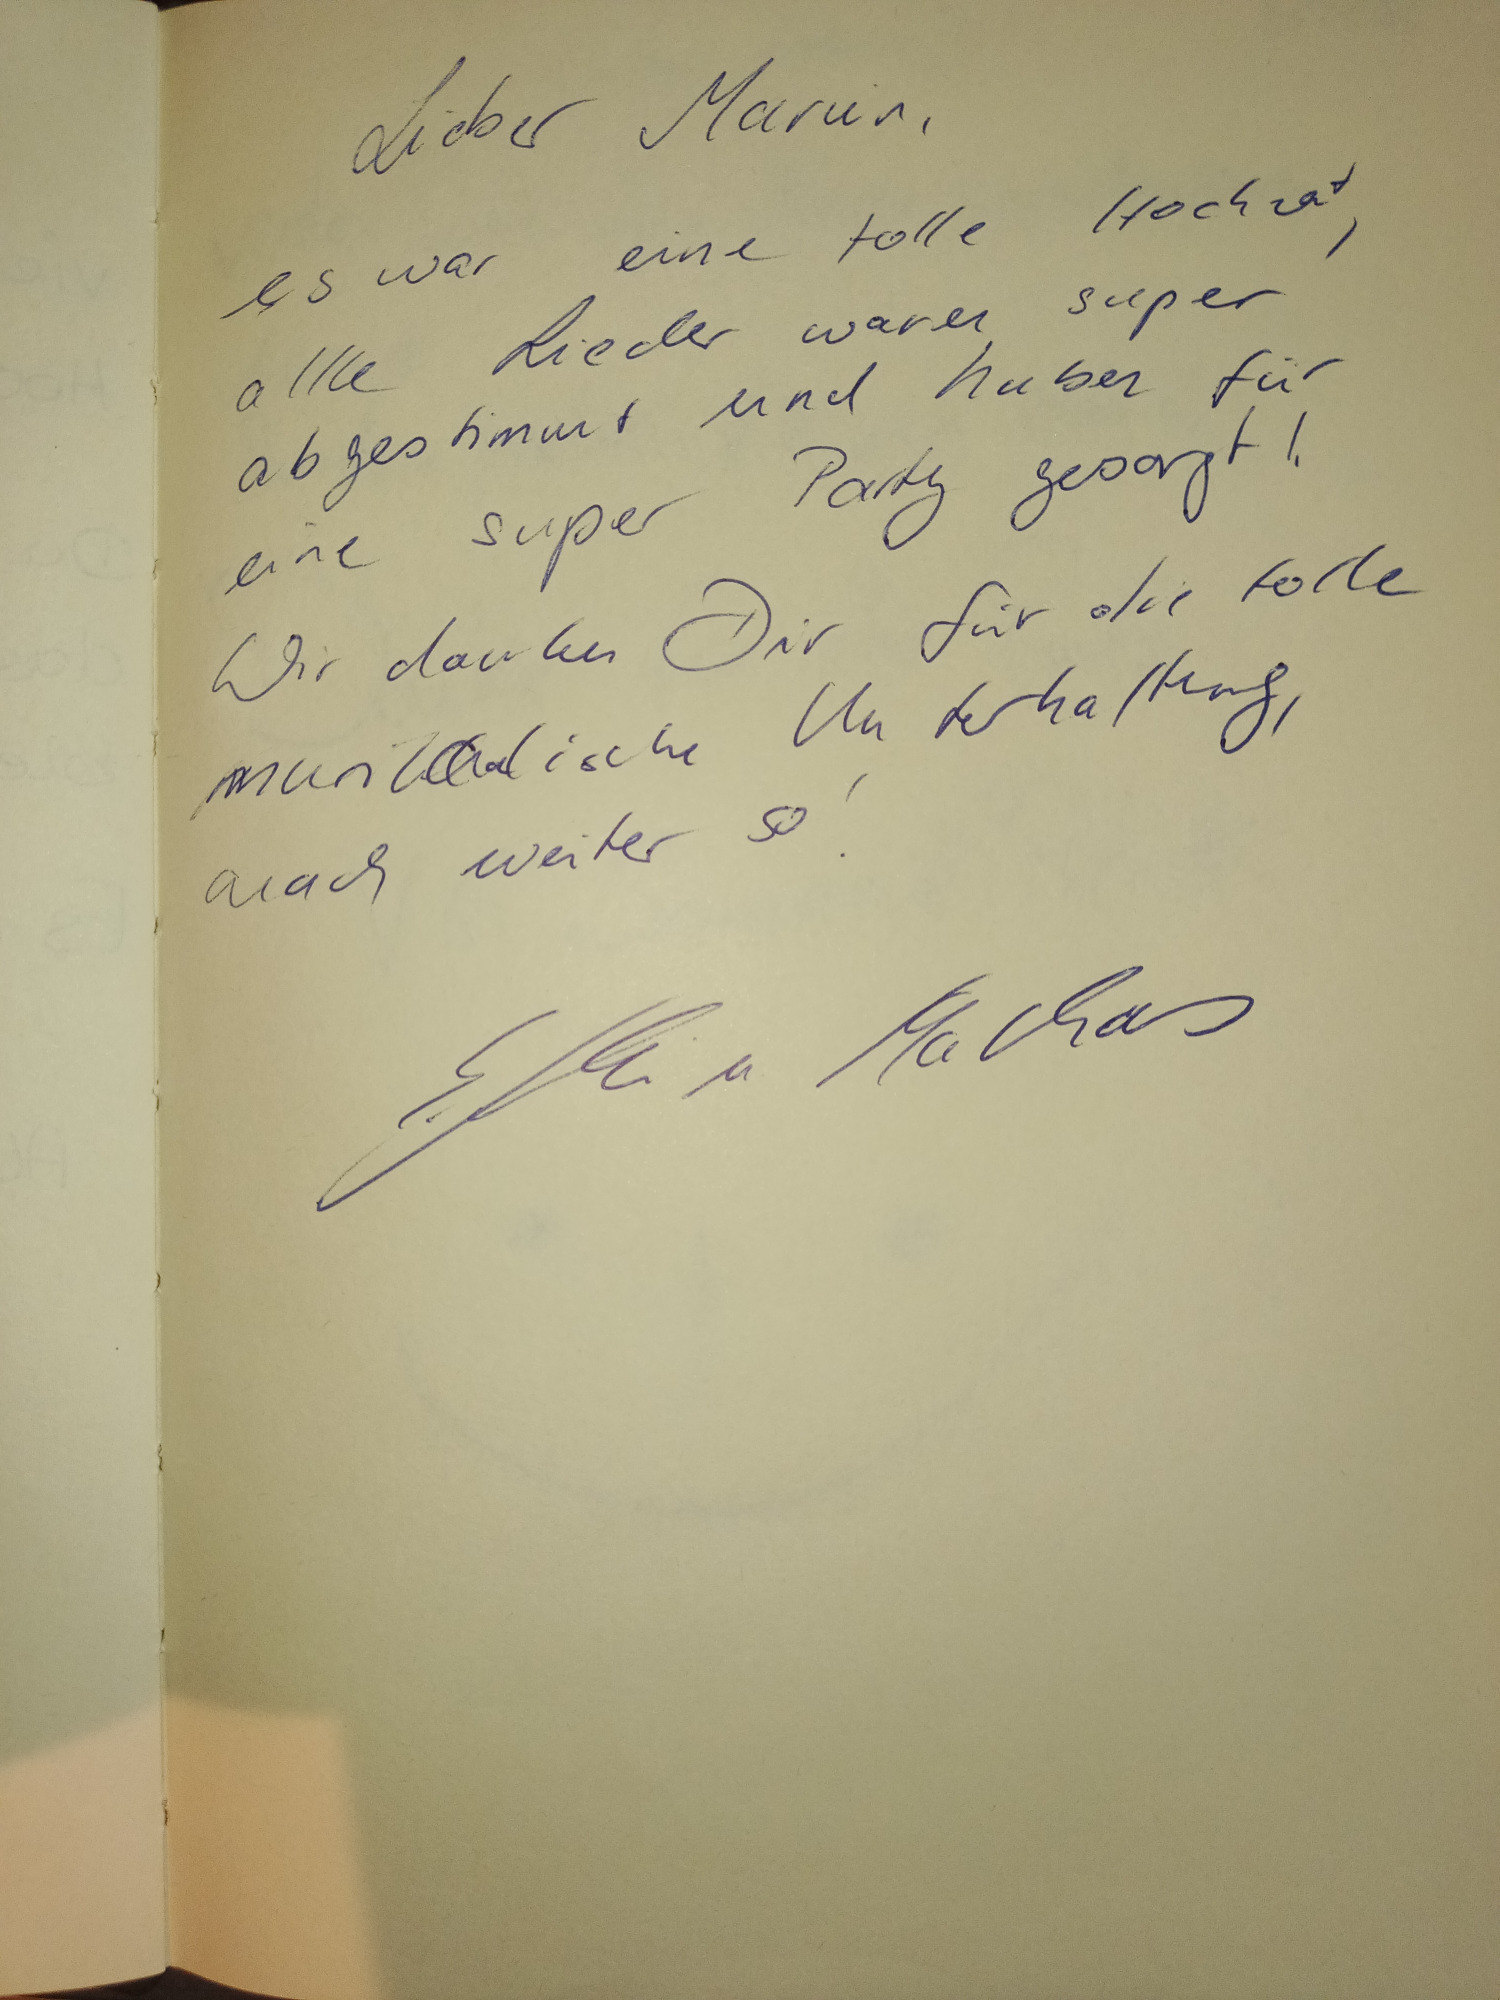 Lieber Marvin,
es war eine tolle Hochzeit,
alle Lieder waren super
abgestimmt und haben für
eine super Party gesorgt!
Wir danken Dir für die tolle
musikalische Unterhaltung,
mach weiter so!